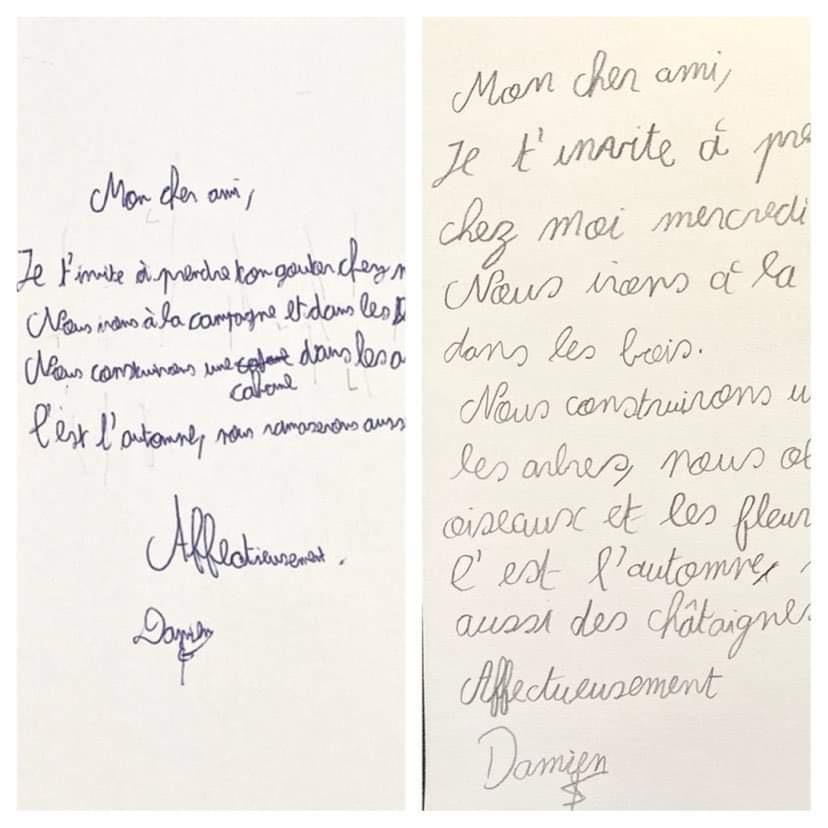 Mon cher ami,
Je t'invite à prendre ton gouter chez
Nous irons à la campagne et dans les
Nous construirons une cabane dans les a
cabane
C'est l'automne, nous ramaserons auss
Affectieusement.
Damien
Mon cher ami,
Je t'invite à pre
chez moi mercredi
Nous irons à la
dans les bois.
Nous construirons u
les arbres, nous ob
oiseaux et les fleur
C'est l'automne,
aussi des châtaignes
Affectueusement
Damien